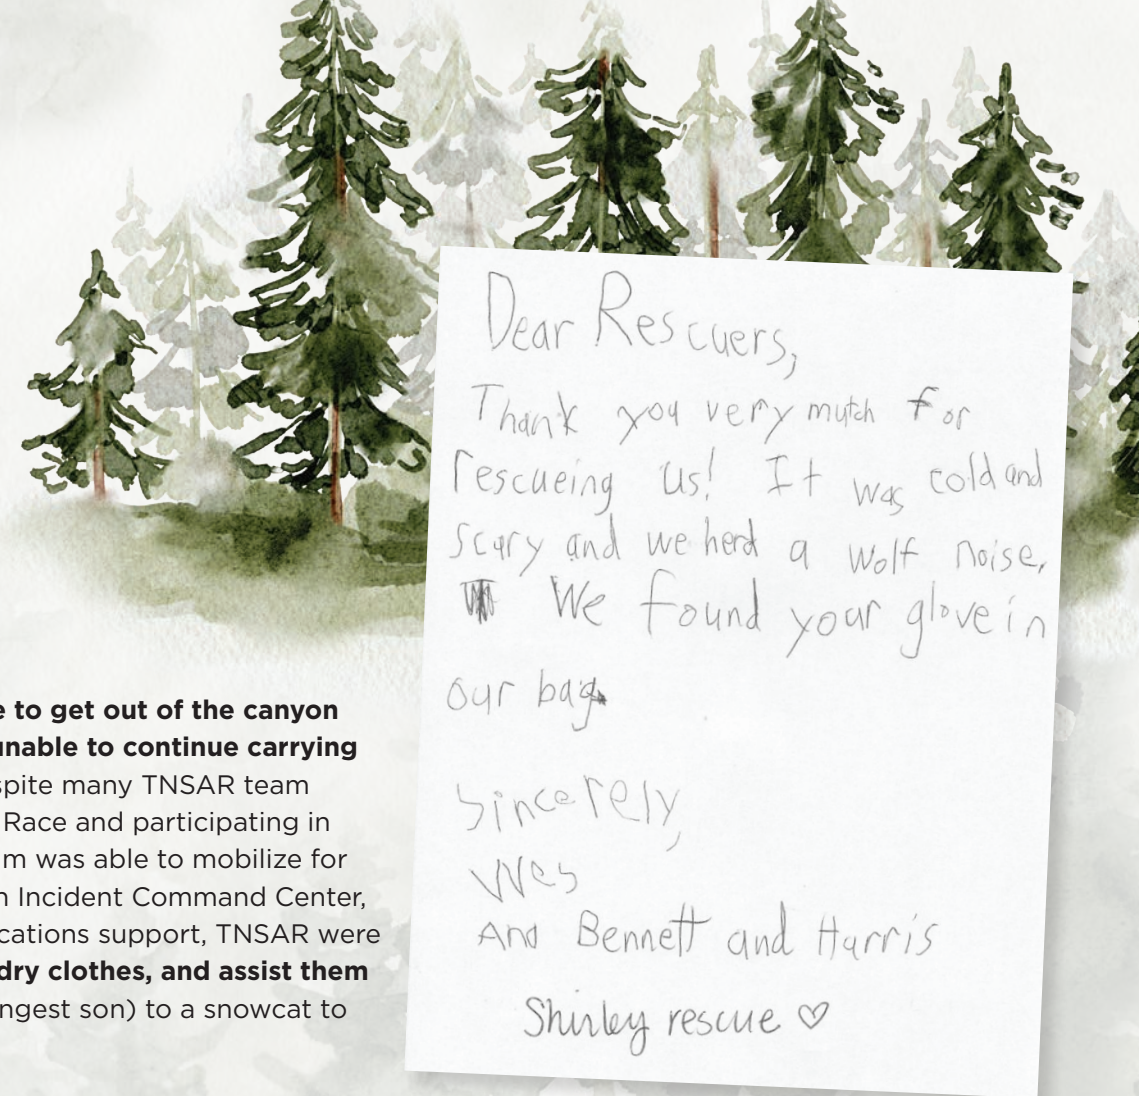 Dear Rescuers,
Thank you very mutch for
rescueing us! It was cold and
scary and we herd a wolf noise.
We found your glove in
our bag.
Sincerely,
Wes
And Bennett and Harris
Shirley rescue ♡
e to get out of the canyon
unable to continue carrying
spite many TNSAR team
Race and participating in
m was able to mobilize for
n Incident Command Center,
cations support, TNSAR were
dry clothes, and assist them
ngest son) to a snowcat to